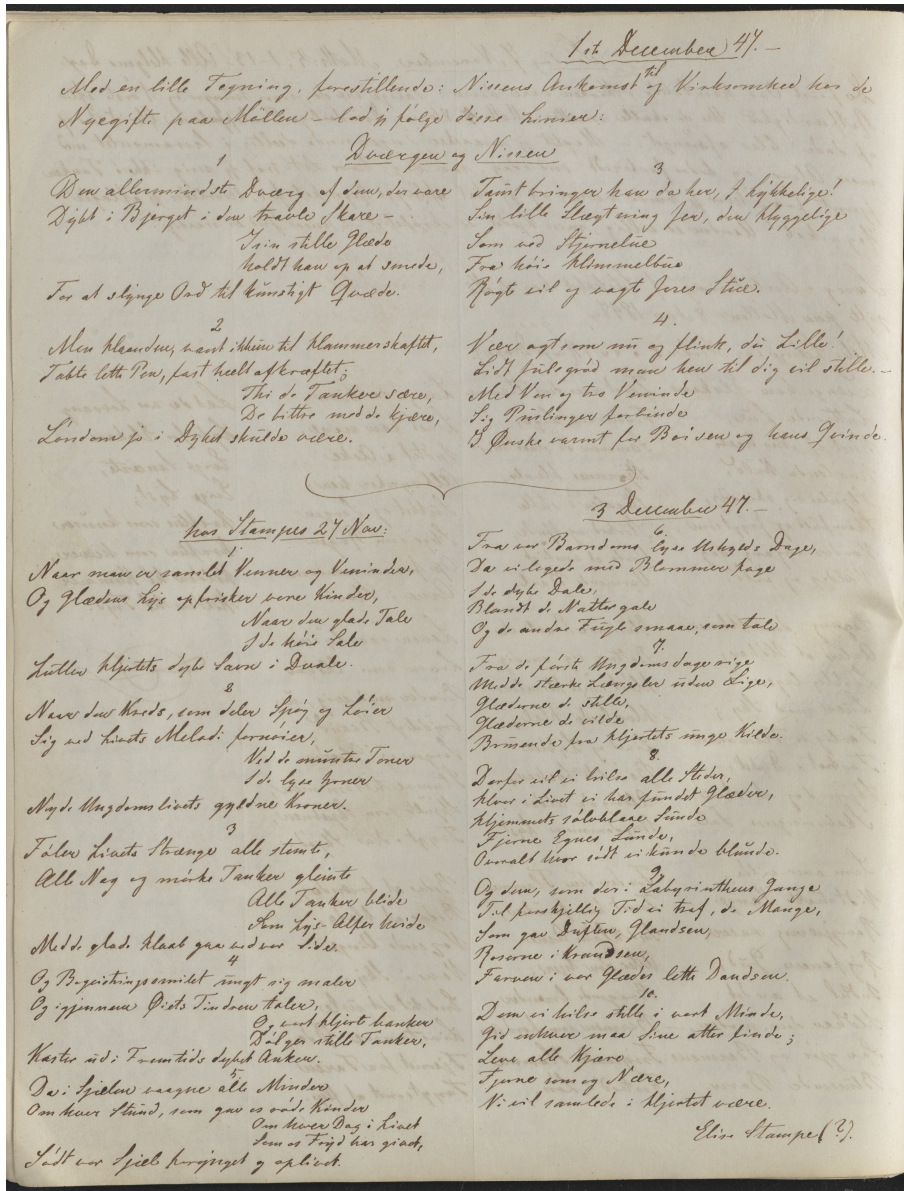 1ste December 47.–
Med en lille Tegning, forestillende: Nissens Ankomst til og Virksomhed hos de
Nyegifte paa Möllen – lod vi følge disse Linier:
Dværgen og Nissen
1
Den allermindste Dværg af dem, der vare
Dybt i Bjerget i den travle Skare –
I sin stille Glæde
holdt han op at smede,
For at slynge Ord til kunstigt Qvæde.
2
Men Haanden, vant ikkun til Hammerskaftet,
Tabte lette Pen, fast heelt afkræftet;
Thi de Tanker sære,
De bittre med de kjære,
Löndom jo i Dybet skulde være.
3
Taust bringer han da her, I Lykkelige!
Sin lille Slægtning Jer, den Hyggelige
Som ved Stjernelue
Fra høie Himmelbue
Røgte vil og vogte Jeres Stue.
4.
Vær agtsom nu og flink, du Lille!
Lidt Julegrød man hen til dig vil stille. –
Med Ven og tro Veninde
Sig Puslinger forbinde
I Ønske varmt for Boisen og hans Qvinde.
hos Stampes 27 Nov:
1.
Naar man er samlet Venner og Veninder,
Og Glædens Lys opfrisker vore Kinder,
Naar den glade Tale
I de høie Sale
Luller Hjertets dybe Savn i Dvale.
2
Naar den Kreds, som deler Spøg og Løier
Sig ved Livets Melodi fornøier,
Ved de muntre Toner
I de lyse Zoner
Nyde Ungdomslivets gyldne Kroner.
3
Føler Livets Strænge alle stemte,
Alle Nag og mørke Tanker glemte
Alle Tanker blide
Som Lys-Alfer hvide
Med de glade Haab gaa ved vor Side.
4
Og Begeistringssmilet ungt sig maler
Og igjennem Øiets Tindren taler,
Og vort Hjerte banker
Dølger stille Tanker,
Kaster ud i Fremtids dybet Anker.
5.
Da i Sjælen vaagne alle Minder
Om hver Stund, som gav os røde Kinder
Om hver Dag i Livet
Som os Fryd har givet,
Sødt vor Sjæl forynget og oplivet.
3 December 47.–
6.
Fra vor Barndoms lyse Uskylds Dage,
Da vi legede med Blommer fage
I de dybe Dale,
Blandt de Nattergale
Og de andre Fugle smaae, som tale
7.
Fra de første Ungdomsdage rige
Med de stærke Længsler uden Lige,
Glæderne de stille,
Glæderne de vilde
Brusende fra Hjertets unge Kilde.
8.
Derfor vil vi hilse alle Steder,
Hvor i Livet vi har fundet Glæder,
Hjemmets sølvblaae Sunde
Fjerne Egnes Lunde,
Overalt hvor sødt vi kunde blunde.
9.
Og dem, som der i Labyrinthens Gange
Til forskjellig Tid vi traf, de Mange,
Som gav Duften, Glandsen,
Roserne i Krandsen,
Farven i vor Glædes lette Dandsen.
10.
Dem vi hilse stille i vort Minde,
Gid enhver maa Sine atter finde;
Leve alle Kjære
Fjerne som og Nære,
Vi vil samlede i Hjertet være.
Elise Stampe (?).